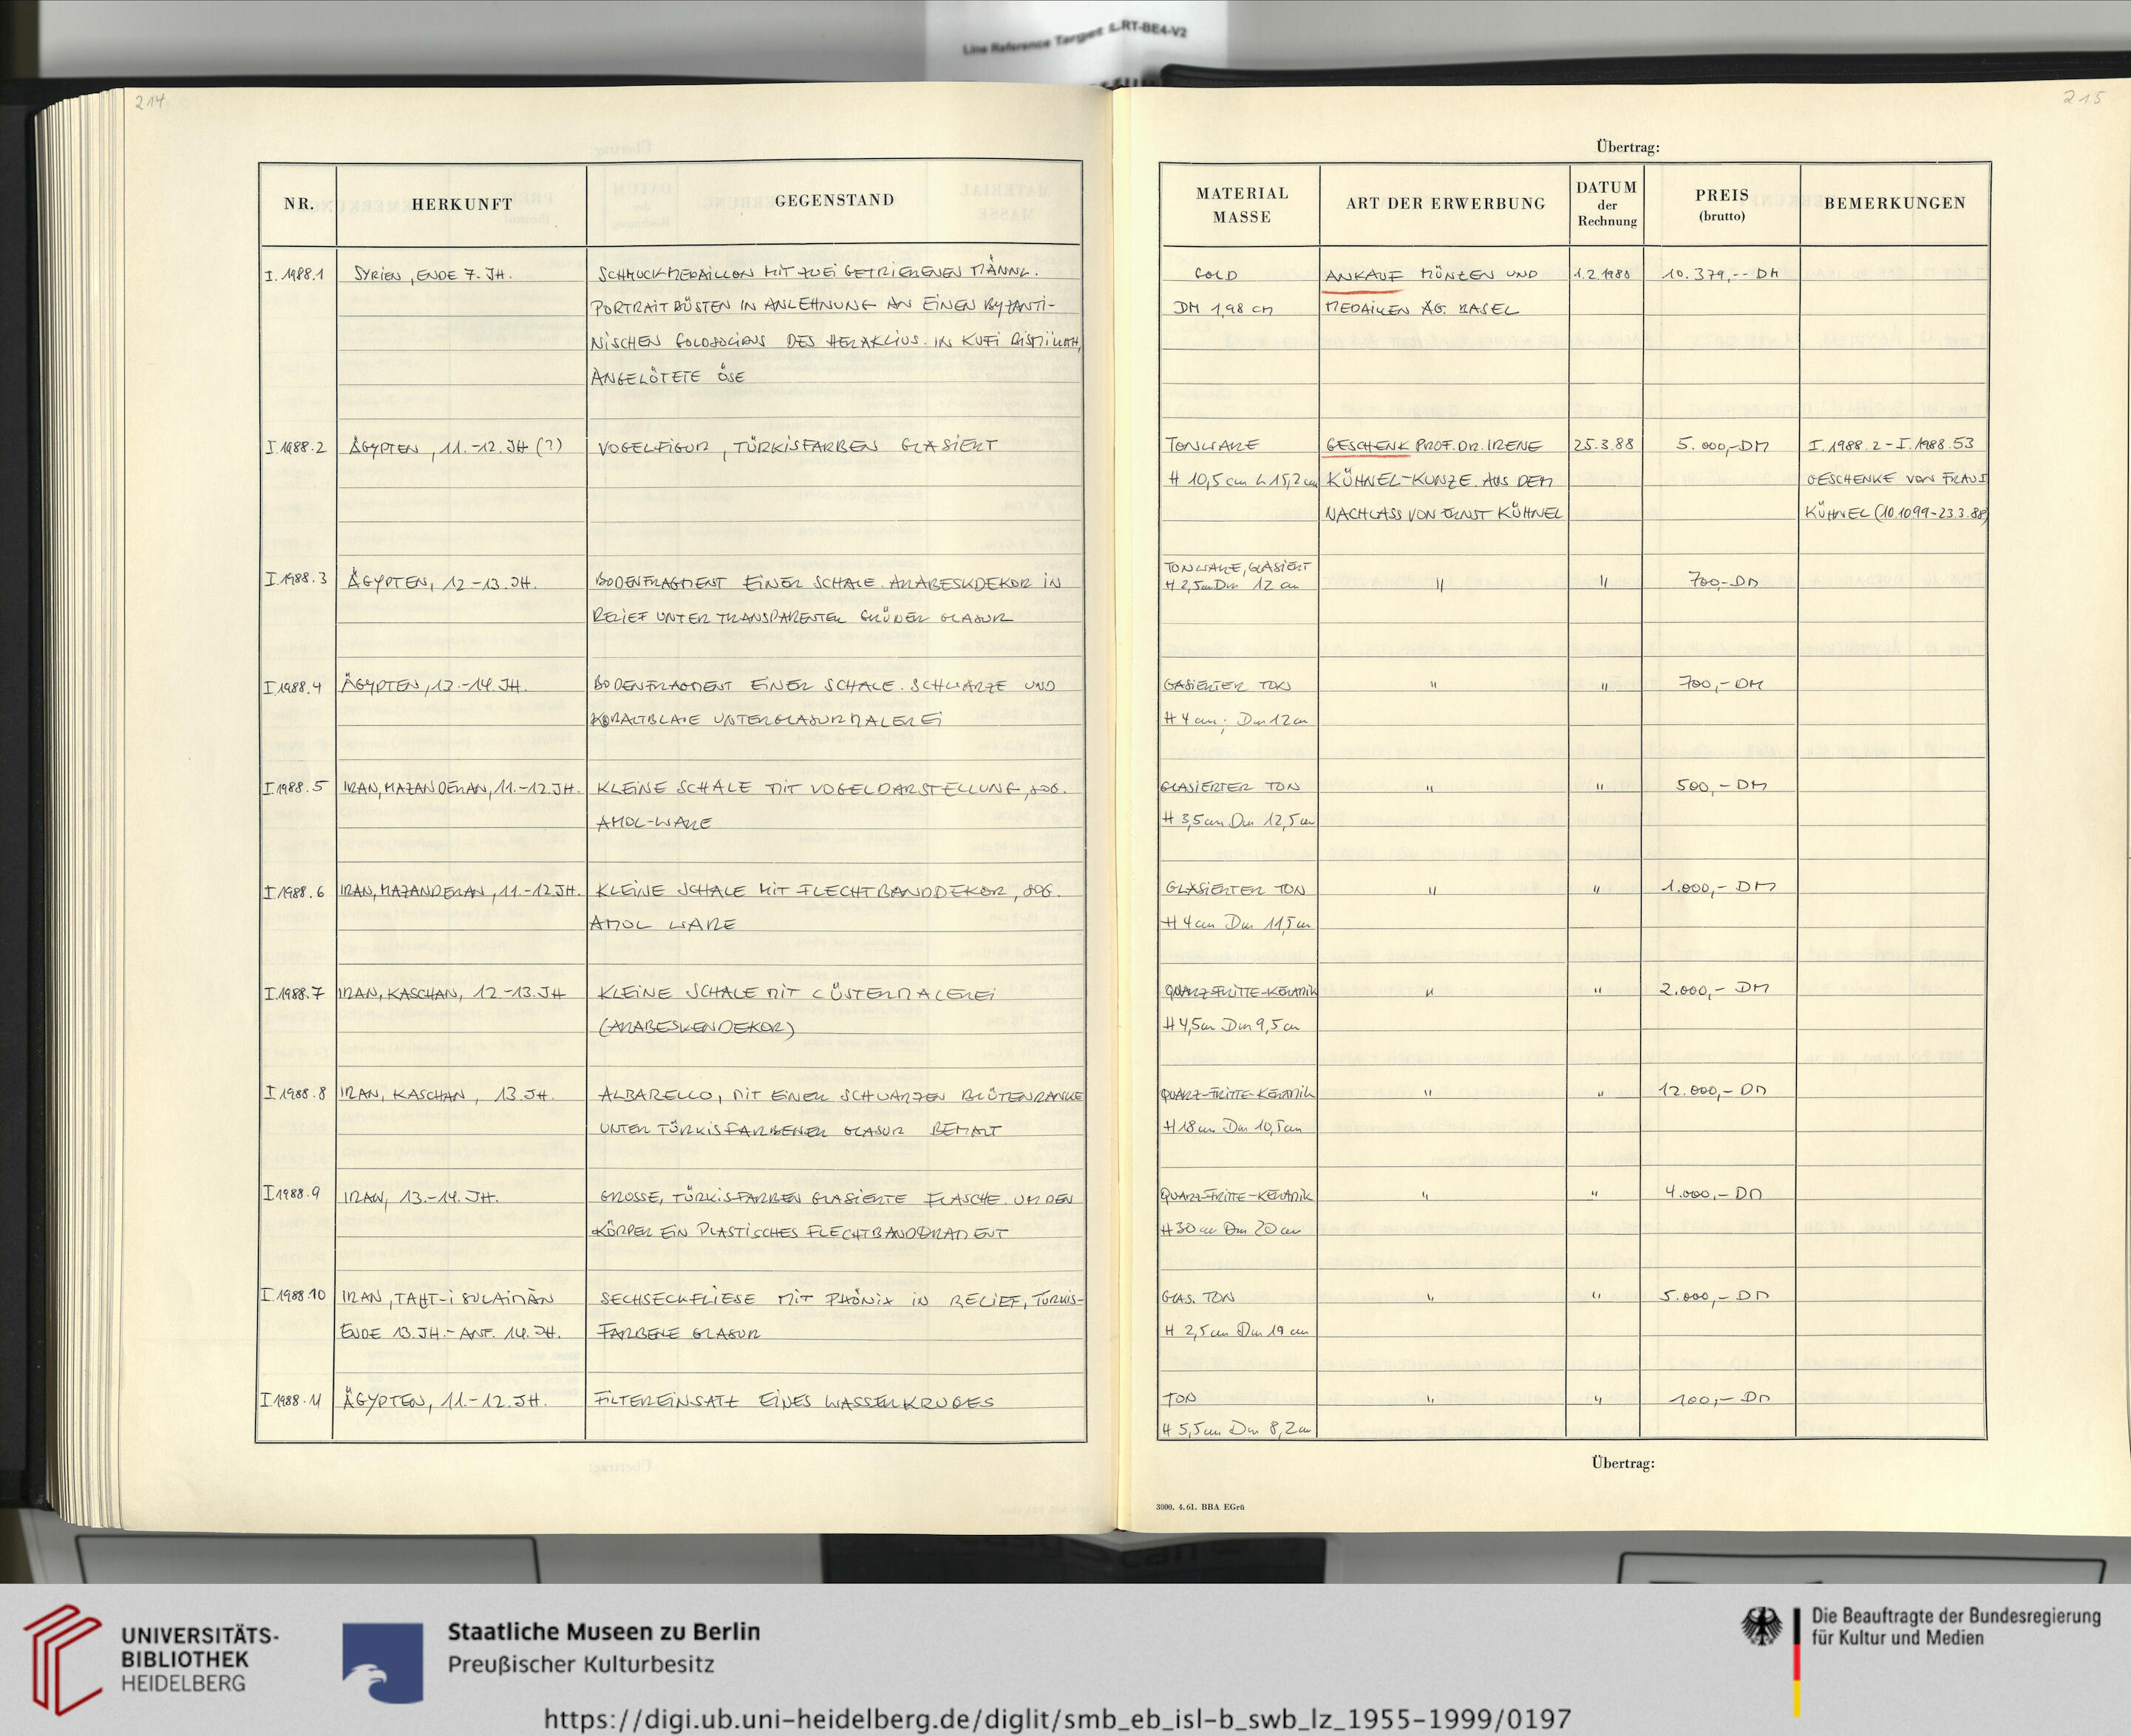 Line Reference Target LRT-BE4-V2
214
NR. HERKUNFT GEGENSTAND
I.1988.1 SYRIEN, ENDE 7. JH. SCHMUCKMEDAILLON MIT ZWEI GETRIEBENEN MÄNNL.
PORTRAITBÜSTEN IN ANLEHNUNG AN EINEN BYZANTI-
NISCHEN GOLDSOLIDUS DES HERAKLIUS. IN KUFI BISMILLAH,
ANGELÖTETE ÖSE
I.1988.2 ÄGYPTEN, 11.-12. JH (?) VOGELFIGUR, TÜRKISFARBEN GLASIERT
I.1988.3 ÄGYPTEN, 12-13. JH. BODENFRAGMENT EINER SCHALE. ARABESKDEKOR IN
RELIEF UNTER TRANSPARENTER GRÜNER GLASUR
I.1988.4 ÄGYPTEN, 13.-14. JH. BODENFRAGMENT EINER SCHALE. SCHWARZE UND
KOBALTBLAUE UNTERGLASURMALEREI
I.1988.5 IRAN, MAZANDERAN, 11.-12. JH. KLEINE SCHALE MIT VOGELDARSTELLUNG, SOG.
AMOL-WARE
I.1988.6 IRAN, MAZANDERAN, 11.-12 JH. KLEINE SCHALE MIT FLECHTBANDDEKOR, SOG.
AMOL WARE
I.1988.7 IRAN, KASCHAN, 12.-13. JH KLEINE SCHALE MIT LÜSTERMALEREI
(ARABESKENDEKOR)
I.1988.8 IRAN, KASCHAN, 13. JH. ALBARELLO, MIT EINER SCHWARZEN BLÜTENRANKE
UNTER TÜRKISFARBENER GLASUR BEMALT
I.1988.9 IRAN, 13.-14. JH. GROSSE, TÜRKISFARBEN GLASIERTE FLASCHE. UM DEN
KÖRPER EIN PLASTISCHES FLECHTBANDORNAMENT
I.1988.10 IRAN, TAHT-I SULAIMĀN SECHSECKFLIESE MIT PHÖNIX IN RELIEF, TÜRKIS-
ENDE 13. JH.- ANF. 14. JH. FARBENE GLASUR
I.1988.11 ÄGYPTEN, 11.-12. JH. FILTEREINSATZ EINES WASSERKRUGES
215
Übertrag:
MATERIAL MASSE ART DER ERWERBUNG DATUM der Rechnung PREIS (brutto) BEMERKUNGEN
GOLD ANKAUF MÜNZEN UND 1.2.1980 10.379,-- DM
DM 1,98 CM MEDAILLEN AG. BASEL
TONWARE GESCHENK PROF. DR. IRENE 25.3.88 5.000,-DM I.1988.2-I.1988.53
H 10,5 cm L 15,2 cm KÜHNEL-KUNZE. AUS DEM GESCHENKE VON FRAU I
NACHLASS VON ERNST KÜHNEL KÜHNEL (10.10 99-23.3.88)
TONWARE, GLASIERT
H 2,5 cm Dm 12 cm " " 700,- DM
GASIERTER TON " " 700,- DM
H 4 cm; Dm 12 cm
GLASIERTER TON " " 500,- DM
H 3,5 cm Dm 12,5 cm
GLASIERTER TON " " 1.000,- DM
H 4 cm Dm 11,5 cm
QUARZ-FRITTE-KERAMIK " " 2.000,- DM
H 4,5 cm Dm 9,5 cm
QUARZ-FRITTE-KERAMIK " " 12.000,- DM
H 18 cm Dm 10,5 cm
QUARZ-FRITTE-KERAMIK " " 4.000,- DM
H 30 cm Dm 20 cm
GLAS. TON " " 5.000,- DM
H 2,5 cm Dm 19 cm
TON " " 100,- DM
H 5,5 cm Dm 8,2 cm
Übertrag:
3000. 4.61. BBA EGrü
UNIVERSITÄTS-
BIBLIOTHEK
HEIDELBERG
Staatliche Museen zu Berlin
Preußischer Kulturbesitz
Die Beauftragte der Bundesregierung
für Kultur und Medien
https://digi.ub.uni-heidelberg.de/diglit/smb_eb_isl-b_swb_lz_1955-1999/0197